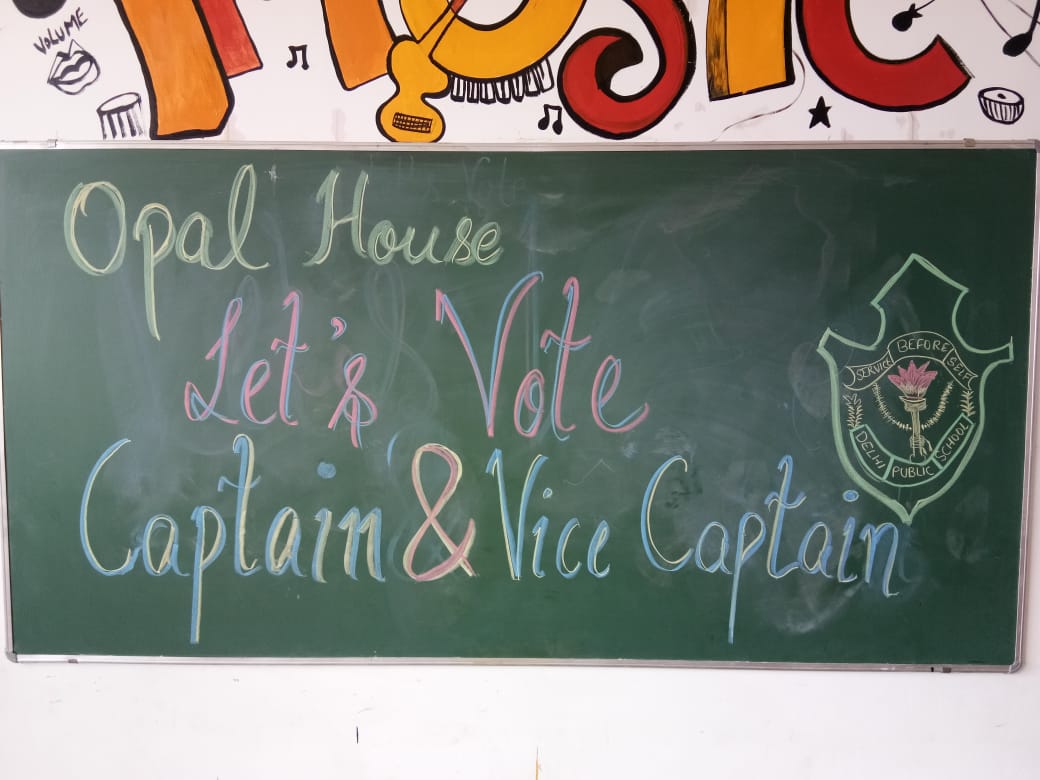 VOLUME
MUSIC
Opal House
Let's Vote
Captain & Vice Captain
SERVICE BEFORE SELF
DELHI PUBLIC SCHOOL